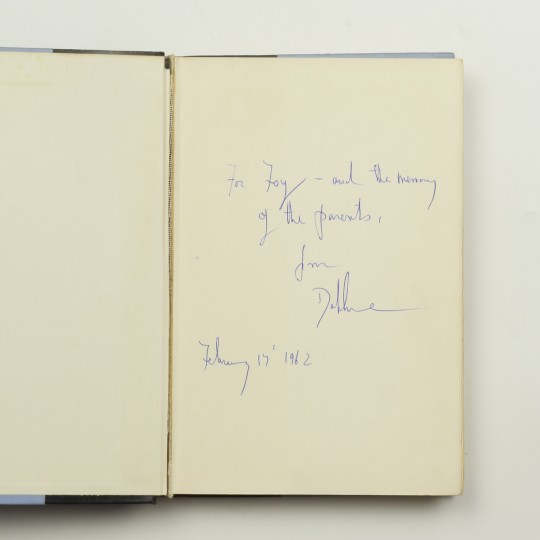 For Foy – and the memory
of the parents,
from
Daphne
February 17' 1962